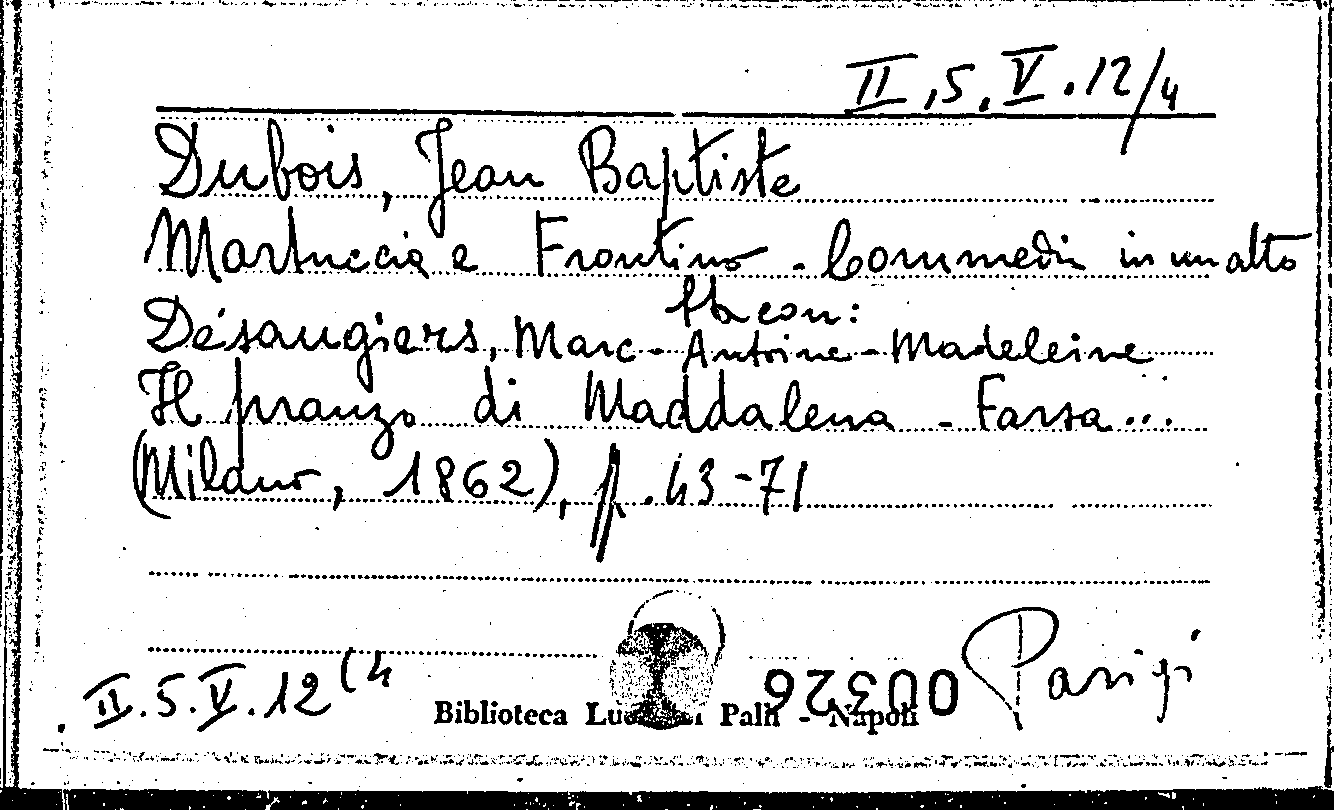 II.5.V.12/4
Dubois, Jean Baptiste
Martuccia e Frontino - Commedia in un atto
Sta con:
Désaugiers, Marc-Antoine-Madeleine
Il pranzo di Maddalena - Farsa...
(Milano, 1862), p. 43-71
II.5.V.12(4
Biblioteca Palli - Napoli
00326
Parigi